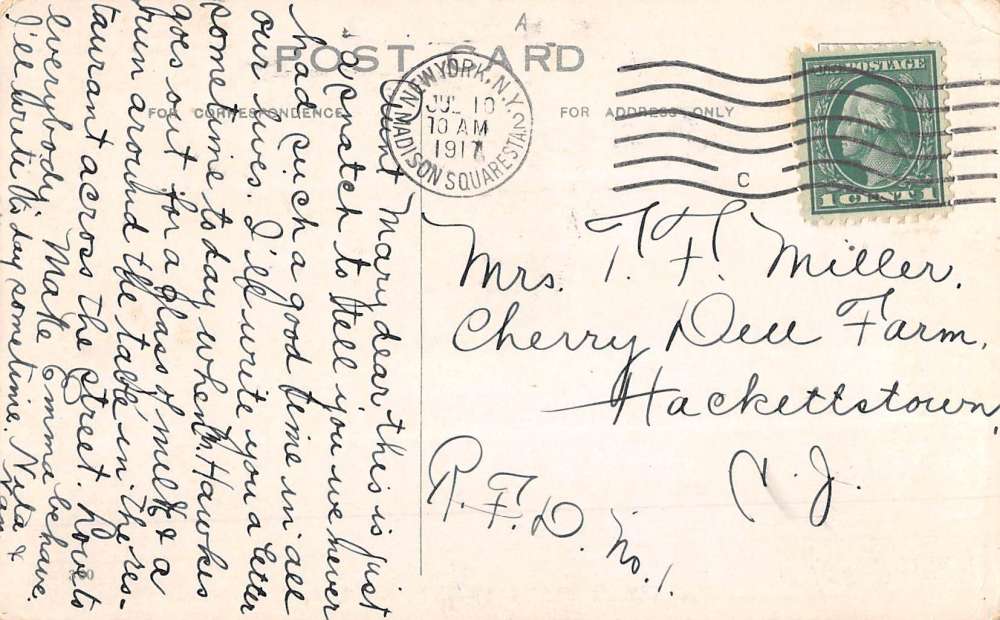 A
POST CARD
FOR CORRESPONDENCE
FOR ADDRESS ONLY
NEW YORK, N.Y. 2
JUL 10
10 AM
1917
MADISON SQUARE STA.
C
U.S. POSTAGE
1 CENT 1
Aunt Mary dear this is just
a scratch to tell you we never
had such a good time in all
our lives. I'll write you a letter
sometime today when Hawkes
goes out for a glass of milk & a
around the table in the res-
taurant across the street. Love to
everybody. Make Emma behave.
I'll write to day sometime. Nita &
Nan
Mrs. T. F. Miller.
Cherry Dell Farm,
Hackettstown,
N. J.
R. F. D. No. 1.